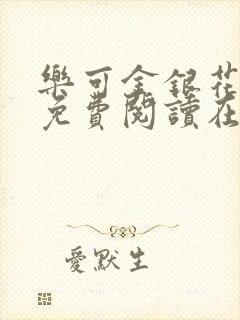 樂可金銀花
免費閱讀在
愛默生